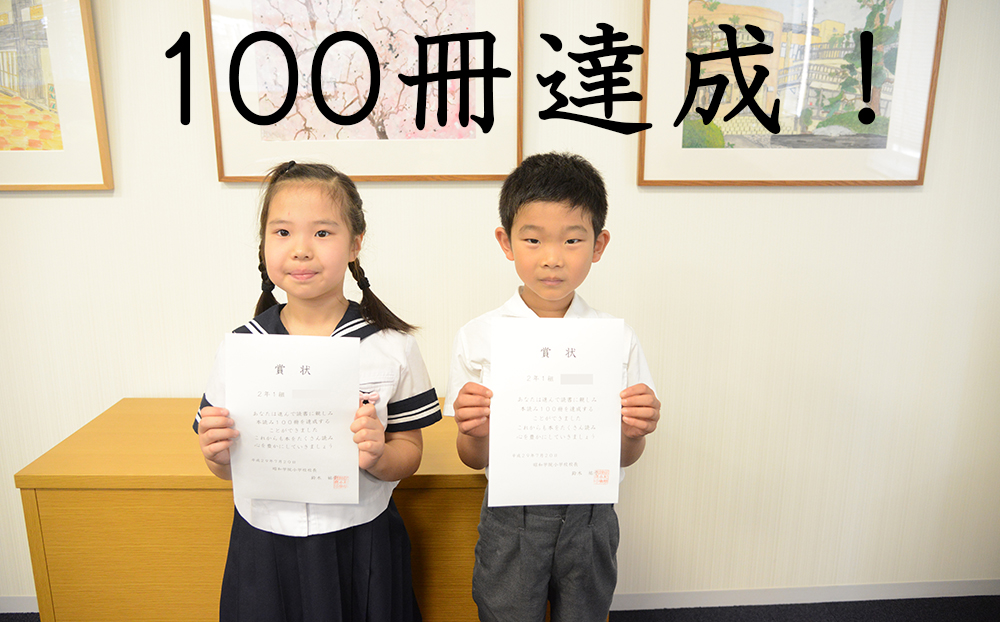 100冊達成！
賞 状
２年１組
あなたは進んで読書に親しみ
本読み１００冊を達成する
ことができました
これからも本をたくさん読み
心を豊かにしていきましょう
平成２５年７月２０日
昭和学院小学校校長
鈴木
賞 状
２年１組
あなたは進んで読書に親しみ
本読み１００冊を達成する
ことができました
これからも本をたくさん読み
心を豊かにしていきましょう
平成２５年７月２０日
昭和学院小学校校長
鈴木